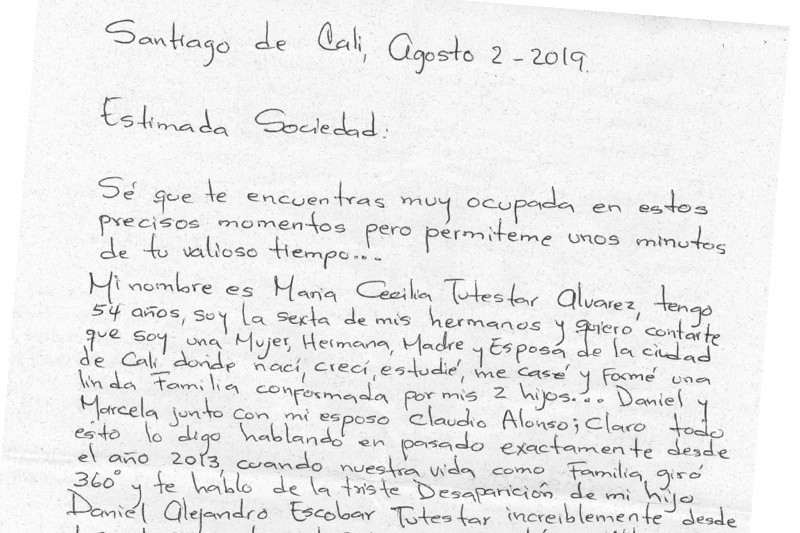 Santiago de Cali, Agosto 2 - 2019.
Estimada Sociedad:
Sé que te encuentras muy ocupada en estos
precisos momentos pero permiteme unos minutos
de tu valioso tiempo...
Mi nombre es Maria Cecilia Tutestar Alvarez, tengo
54 años, soy la sexta de mis hermanos y quiero contarte
que soy una Mujer, Hermana, Madre y Esposa de la ciudad
de Cali donde nací, crecí, estudié, me casé y formé una
linda Familia conformada por mis 2 hijos... Daniel y
Marcela junto con mi esposo Claudio Alonso; Claro todo
esto lo digo hablando en pasado exactamente desde
el año 2013, cuando nuestra vida como Familia giró
360° y te hablo de la triste Desaparición de mi hijo
Daniel Alejandro Escobar Tutestar increiblemente desde